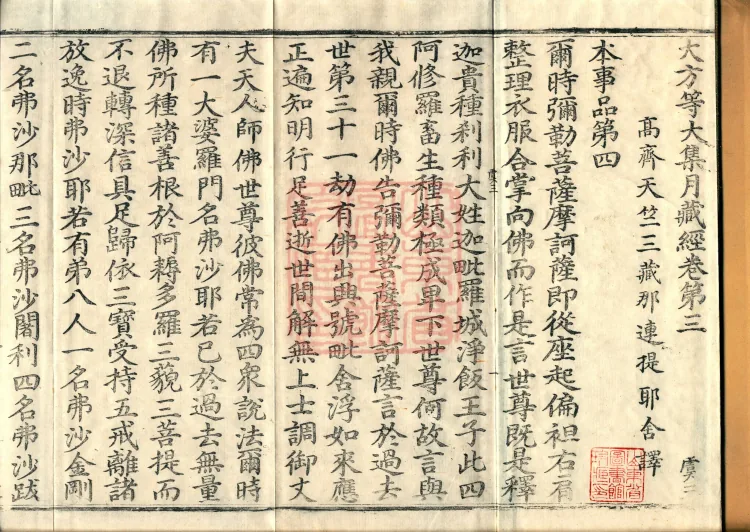 大方等大集月藏經卷第三　虞三
高齊天竺三藏那連提耶舍譯
本事品第四
爾時彌勒菩薩摩訶薩即從座起偏袒右肩
整理衣服合掌向佛而作是言世尊既是釋
迦貴種剎利大姓迦毗羅城淨飯王子此四
阿修羅畜生種類極成卑下世尊何故言與
我親爾時佛告彌勒菩薩摩訶薩言於過去
世第三十一劫有佛出興號毗舍浮如來應
正遍知明行足善逝世間解無上士調御丈
夫天人師佛世尊彼佛常為四眾說法爾時
有一大婆羅門名弗沙耶若已於過去無量
佛所種諸善根於阿耨多羅三藐三菩提而
不退轉深信具足歸依三寶受持五戒離諸
放逸時弗沙耶若有弟八人一名弗沙金剛
二名弗沙那毗三名弗沙闍利四名弗沙跋